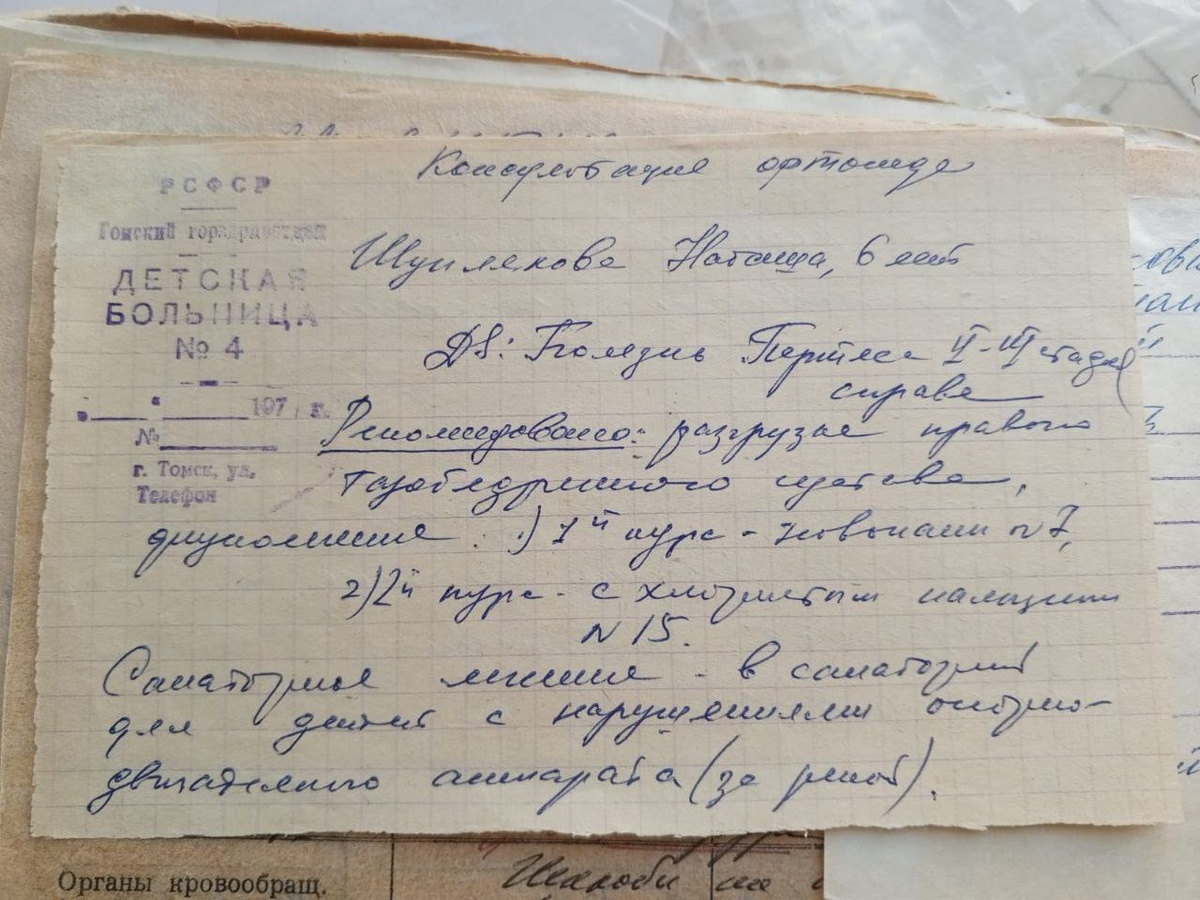 РСФСР
Томский горздравотдел
ДЕТСКАЯ
БОЛЬНИЦА
№ 4
"___" ______ 197 г.
№
г. Томск, ул.
Телефон
Консультация ортопеда
Шуплякова Наташа, 6 лет
DS: Болезнь Пертеса II-III стадия
справа
Рекомендовано: разгрузка правого
тазобедренного сустава,
1) 1й курс - новокаин N 7,
2) 2й курс - с хлористым кальцием
N 15.
Санаторное лечение - в санаторий
для детей с нарушениями опорно-
двигательного аппарата (за рекой).
Органы кровообращ.
Жалобы на